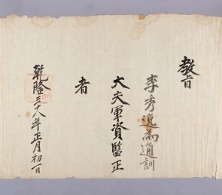 敎旨
李秀逸爲通訓
大夫軍資監正
者
乾隆三十八年正月初一日